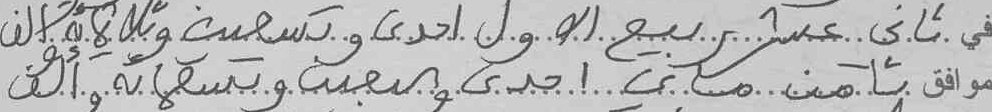 في ثاني عشر ربيع الاول احدى وتسعين وثلاثمائة وألف
موافق ثامن ماي احدى وسبعين وتسعمائة وألف